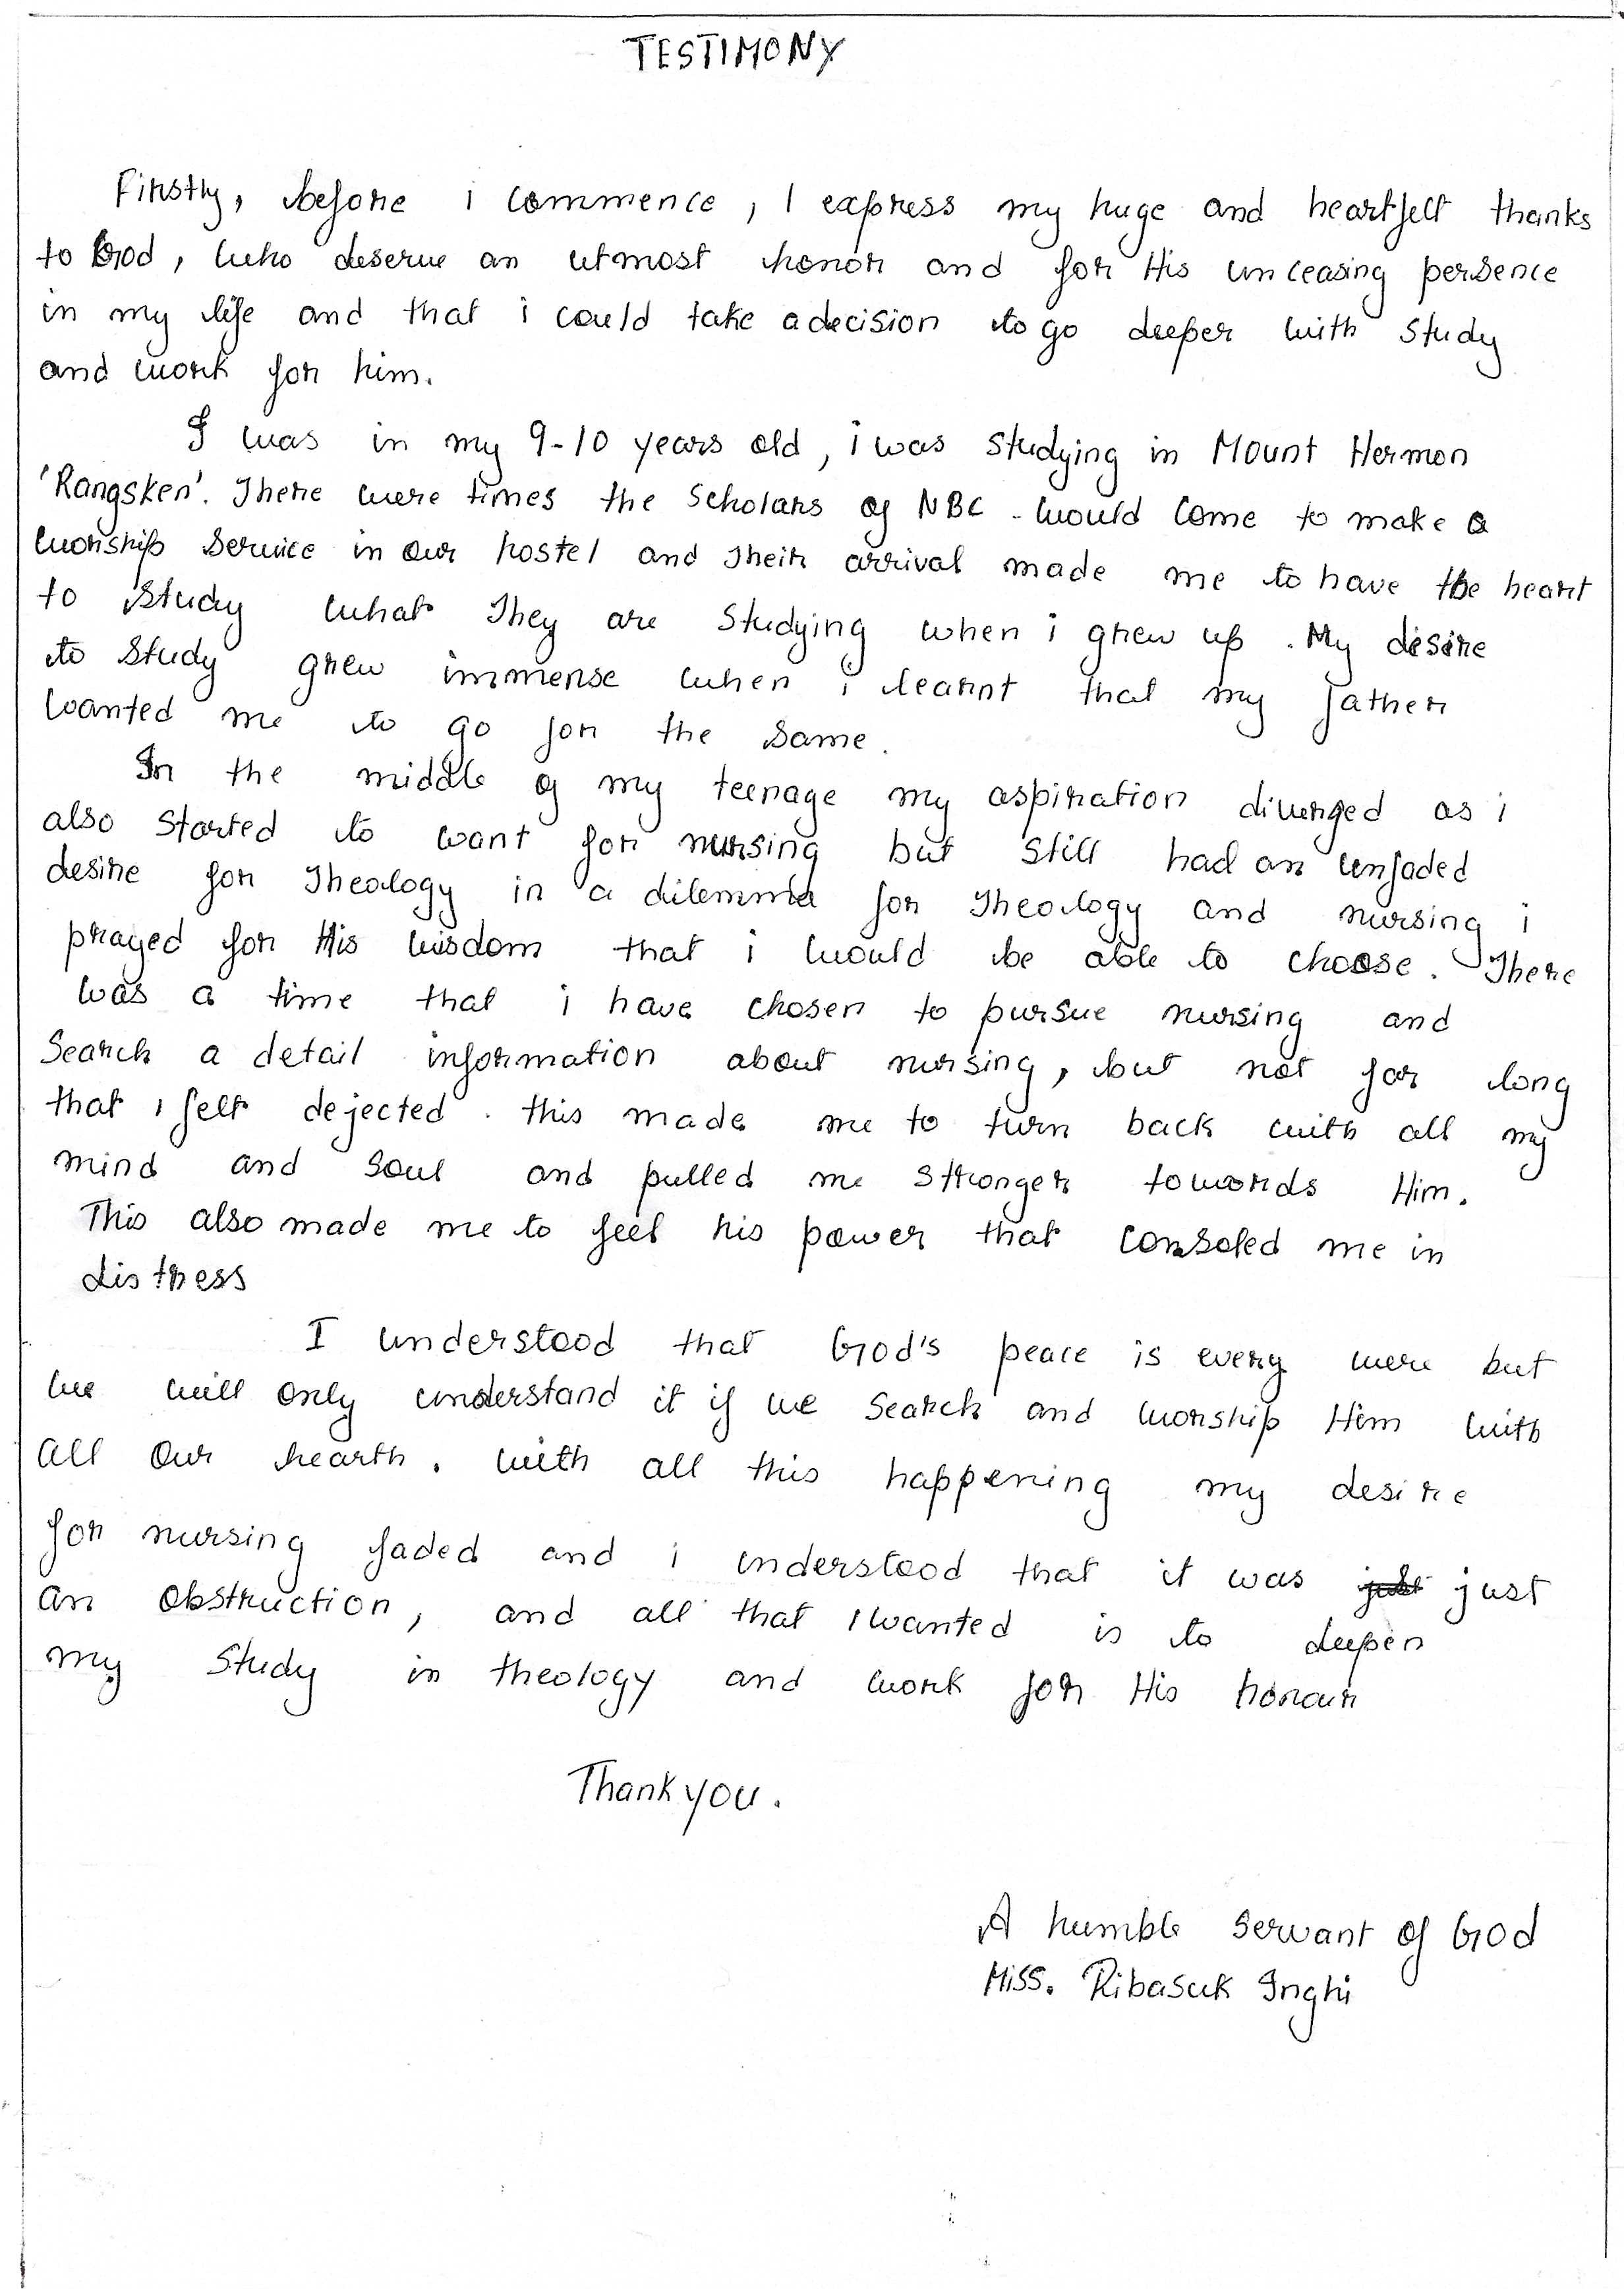 TESTIMONY
Firstly, before i commence, I express my huge and heartfelt thanks
to God, who deserve an utmost honor and for His unceasing persence
in my life and that i could take a decision to go deeper with study
and work for him.
I was in my 9-10 years old, i was studying in Mount Hermon
'Rangsken'. There were times the Scholars of NBC would come to make a
worship service in our hostel and their arrival made me to have the heart
to study what they are studying when i grew up. My desire
to study grew immense when i learnt that my father
wanted me to go for the same.
In the middle of my teenage my aspiration diverged as i
also started to want for nursing but still had an unfaded
desire for Theology in a dilemma for Theology and nursing i
prayed for His wisdom that i would be able to choose. There
was a time that i have chosen to pursue nursing and
Search a detail information about nursing, but not for long
that i felt dejected. this made me to turn back with all my
mind and soul and pulled me stronger towards Him.
This also made me to feel his power that consoled me in
distress
I understood that God's peace is every were but
we will only understand it if we search and worship Him with
all our hearth. with all this happening my desire
for nursing faded and i understood that it was just just
an obstruction, and all that I wanted is to deepen
my study in theology and work for His honour
Thank you.
A humble servant of God
Miss. Ribasuk Inghi